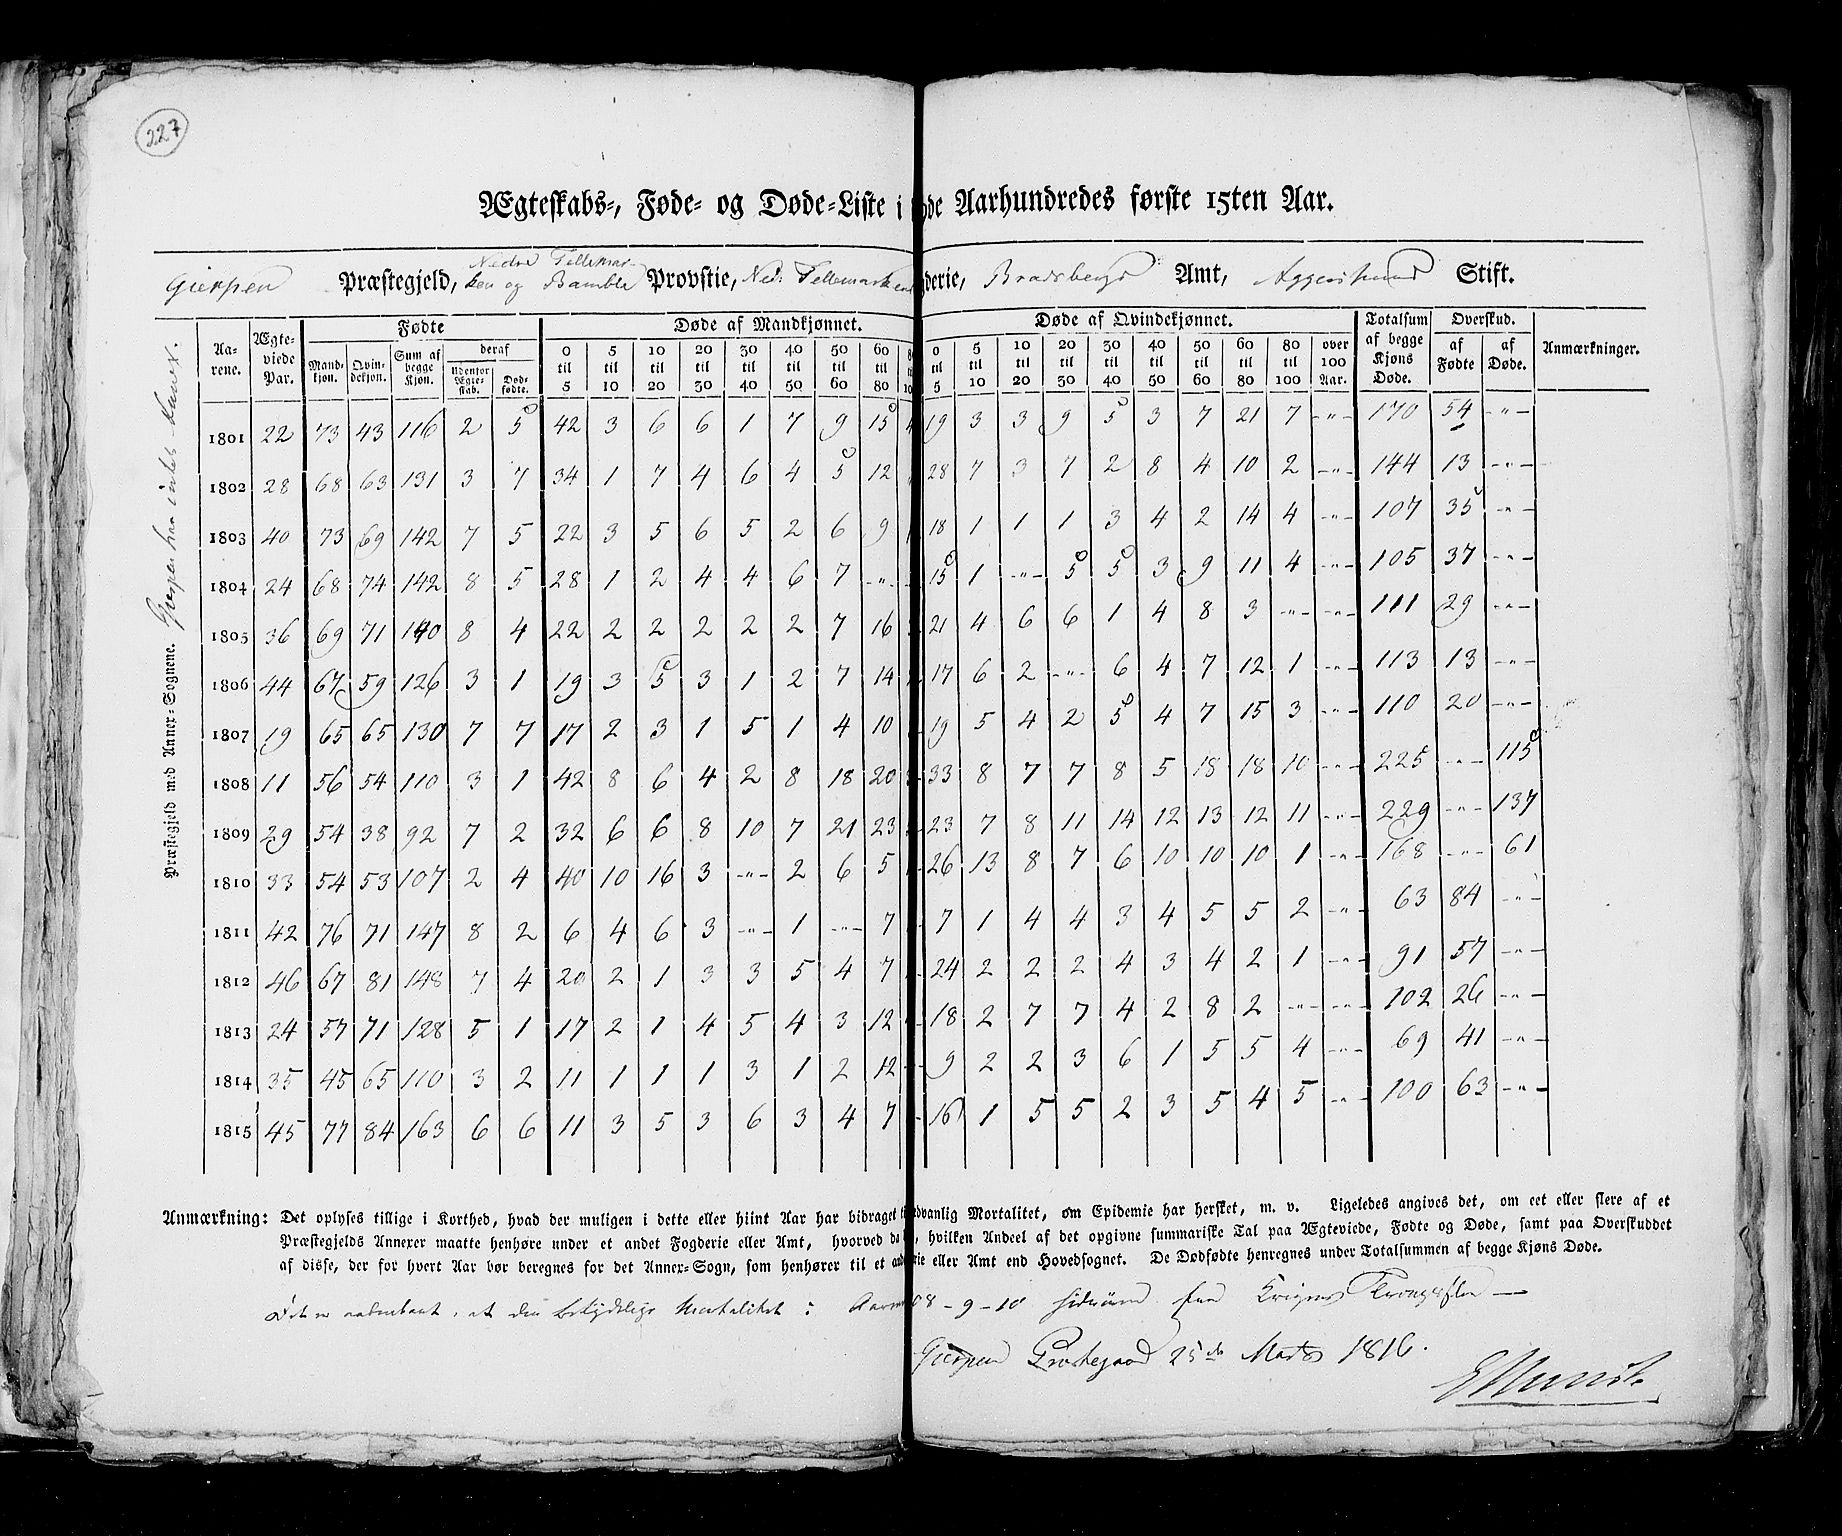 227
Ægteskabs-, Føde- og Døde-Liste i de Aarhundredes første 15ten Aar.
Nedre Tellemar-
Gierpen Præstegjeld, ken og Bamble Provstie, Ned: Tellemarkens derie, Bradsbergs Amt, Aggershuus Stift.
Præstegjeld med Annex-Sognene. Gierpen har intet Annex.
Aarene. Ægteviede Par. Fødte Døde af Mandkjønnet. Døde af Qvindekjønnet. Totalsum af begge Kjøns Døde. Overskud. Anmærkninger.
Mandkjøn. Qvindekjøn. Sum af begge Kjøn. deraf Udenfor Ægteskab. Dødfødte. 0 til 5 5 til 10 10 til 20 20 til 30 30 til 40 40 til 50 50 til 60 60 til 80 0 til 5 5 til 10 10 til 20 20 til 30 30 til 40 40 til 50 50 til 60 60 til 80 80 til 100 over 100 Aar. af Fødte af Døde.
1801 22 73 43 116 2 5 42 3 6 6 1 7 9 15 4 19 3 3 9 5 3 7 21 7 -"- 170 54 -"-
1802 28 68 63 131 3 7 34 1 7 4 6 4 5 12 28 7 3 7 2 8 4 10 2 -"- 144 13 -"-
1803 40 73 69 142 7 5 22 3 5 6 5 2 6 9 18 1 1 1 3 4 2 14 4 -"- 107 35 -"-
1804 24 68 74 142 8 5 28 1 2 4 4 6 7 -"- 15 1 -"- 5 5 3 9 11 4 -"- 105 37 -"-
1805 36 69 71 140 8 4 22 2 2 2 2 2 7 16 21 4 6 6 1 4 8 3 -"- -"- 111 29 -"-
1806 44 67 59 126 3 1 19 3 5 3 1 2 7 14 17 6 2 -"- 6 4 7 12 1 -"- 113 13 -"-
1807 19 65 65 130 7 7 17 2 3 1 5 1 4 10 19 5 4 2 5 4 7 15 3 -"- 110 20 -"-
1808 11 56 54 110 3 1 42 8 6 4 2 8 18 20 33 8 7 7 8 5 18 18 10 -"- 225 -"- 115
1809 29 54 38 92 7 2 32 6 6 8 10 7 21 23 23 7 8 11 14 12 13 12 11 -"- 229 -"- 137
1810 33 54 53 107 2 4 40 10 16 3 -"- 2 6 5 26 13 8 7 6 10 10 10 1 -"- 168 -"- 61
1811 42 76 71 147 8 2 6 4 6 3 -"- 1 -"- 7 7 1 4 4 3 4 5 5 2 -"- 63 84 -"-
1812 46 67 81 148 7 4 20 2 1 3 3 5 4 7 24 2 2 2 4 3 4 2 1 -"- 91 57 -"-
1813 24 57 71 128 5 1 17 2 1 4 5 4 3 12 18 2 7 7 4 2 8 2 -"- -"- 102 26 -"-
1814 35 45 65 110 3 2 11 1 1 1 3 1 2 12 9 2 2 3 6 1 5 5 4 -"- 69 41 -"-
1815 45 77 84 163 6 6 11 3 5 3 6 3 4 7 16 1 5 5 2 3 5 4 5 -"- 100 63 -"-
Anmærkning: Det oplyses tillige i Korthed, hvad der muligen i dette eller hiint Aar har bidraget dvanlig Mortalitet, om Epidemie har hersket, m. v. Ligeledes angives det, om eet eller flere af et
Præstegjelds Annexer maatte henhøre under et andet Fogderie eller Amt, hvorved de , hvilken Andeel af det opgivne summariske Tal paa Ægteviede, Fødte og Døde, samt paa Overskuddet
af disse, der for hvert Aar bør beregnes for det Annex-Sogn, som henhører til et and rie eller Amt end Hovedsognet. De Dødfødte henregnes under Totalsummen af begge Kjøns Døde.
Det er aabenbart, at den betydelige Mortalitet i Aarene 08 - 9 - 10 hidrører fra Krigens Trængsler
Gierpen Præstegaard 25de Marts 1816.
EMunch